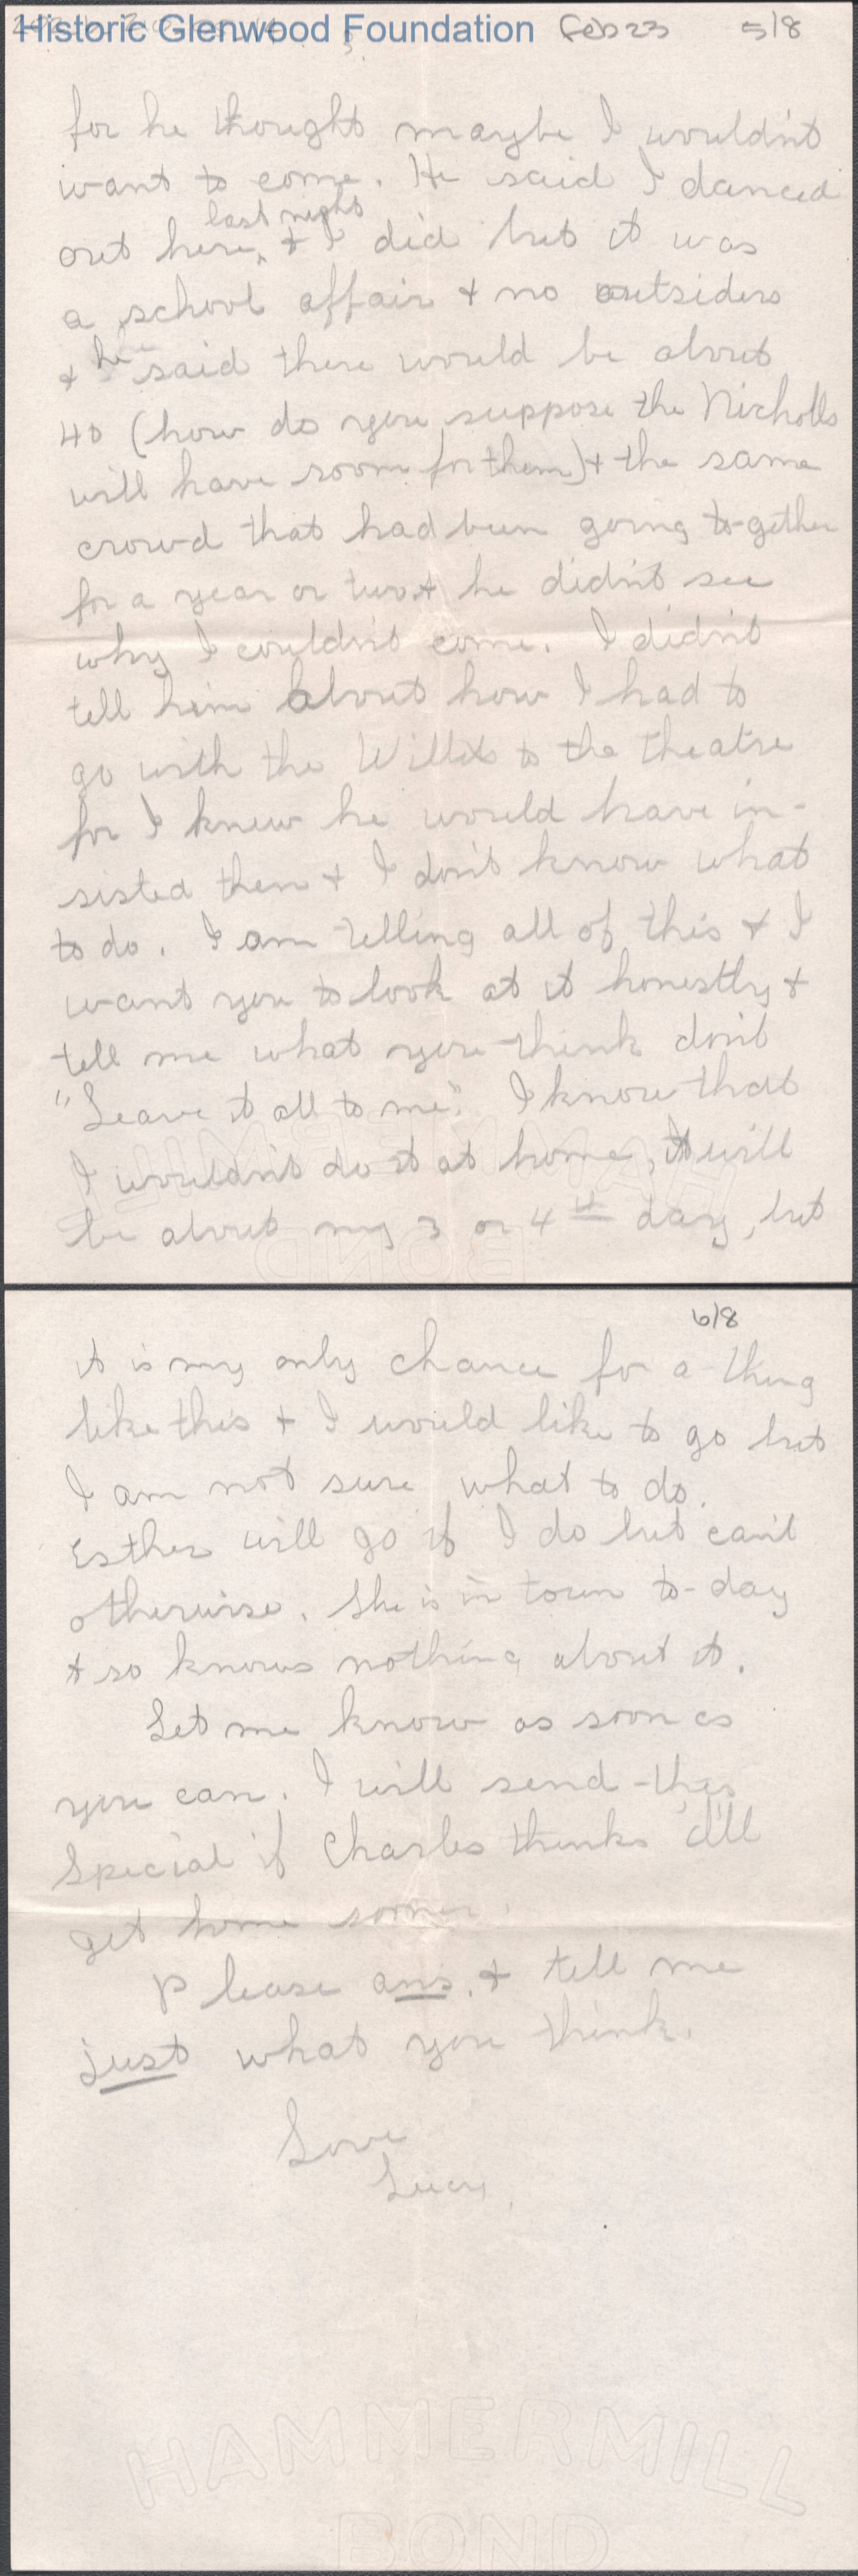 Historic Glenwood Foundation Feb 23 5/8
3.
for he thought maybe I wouldn't
want to come. He said I danced
last night
out here, & I did but it was
a school affair & no outsiders
& he said there would be about
40 (how do you suppose the Nicholls
will have room for them) & the same
crowd that had been going to-gether
for a year or two & he didn't see
why I couldn't come. I didn't
tell him about how I had to
go with the Willits to the theatre
for I knew he would have in-
sisted then & I don't know what
to do. I am telling all of this & I
want you to look at it honestly &
tell me what you think don't
"Leave it all to me". I know that
I wouldn't do it at home, it will
be about my 3 or 4th day, but
HAMMERMILL
BOND
6/8
it is my only chance for a thing
like this & I would like to go but
I am not sure what to do.
Esther will go if I do but can't
otherwise. She is in town to-day
& so knows nothing about it.
Let me know as soon as
you can. I will send this
Special if Charles thinks it'll
get home sooner.
Please ans. & tell me
just what you think.
Love
Lucy.
HAMMERMILL
BOND